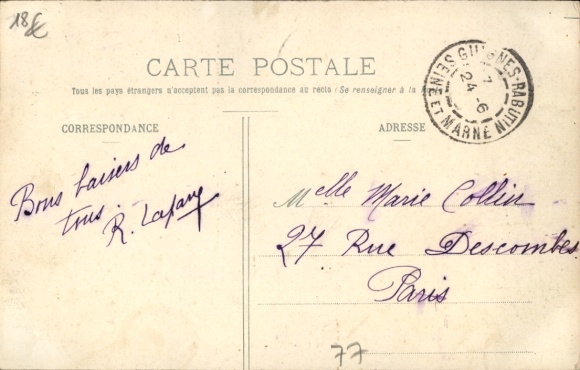 18€
CARTE POSTALE
Tous les pays étrangers n'acceptent pas la correspondance au recto (Se renseigner à la
CORRESPONDANCE
ADRESSE
GUIGNES-RABUTIN
SEINE ET MARNE
7
24-6
Bons baisers de
tous.
R.
Melle Marie Collin
27 Rue Descombes
Paris
77